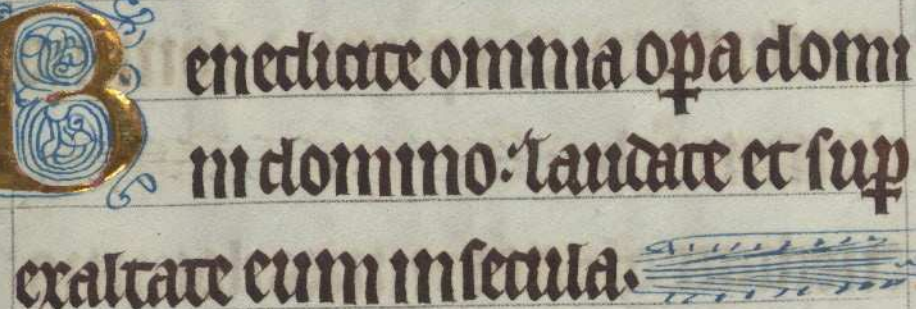 Benedicite omnia oꝑa domi
ni domino: laudate et suꝑ
exaltate eum in secula.